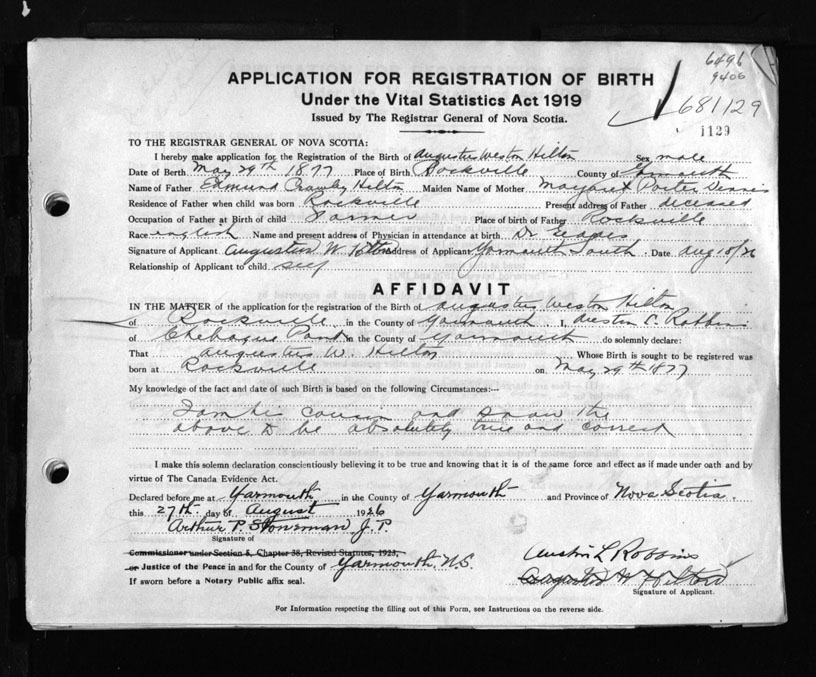 6496
9406
APPLICATION FOR REGISTRATION OF BIRTH
Under the Vital Statistics Act 1919
681129
Issued by The Registrar General of Nova Scotia.
1129
TO THE REGISTRAR GENERAL OF NOVA SCOTIA:
I hereby make application for the Registration of the Birth of Augustus Weston Hilton Sex male
Date of Birth May 29th 1877 Place of Birth Rockville County of Yarmouth
Name of Father Edmund Crawley Hilton Maiden Name of Mother Margaret Porter Dennis
Residence of Father when child was born Rockville Present address of Father deceased
Occupation of Father at Birth of child Farmer Place of birth of Father Rockville
Race english Name and present address of Physician in attendance at birth Dr
Signature of Applicant Augustus W. Hilton Address of Applicant Yarmouth South Date Aug 18/26
Relationship of Applicant to child self
AFFIDAVIT
IN THE MATTER of the application for the registration of the Birth of Augustus Weston Hilton
of Rockville in the County of Yarmouth I, Robbins
of Chebogue Point in the County of Yarmouth do solemnly declare:
That Augustus W. Hilton Whose Birth is sought to be registered was
born at Rockville on May 29th 1877
My knowledge of the fact and date of such Birth is based on the following Circumstances:—
I am his cousin and know the
above to be absolutely true and correct
I make this solemn declaration conscientiously believing it to be true and knowing that it is of the same force and effect as if made under oath and by
virtue of The Canada Evidence Act.
Declared before me at Yarmouth in the County of Yarmouth and Province of Nova Scotia.
this 27th day of August 1926
Arthur P. Stoneman J.P.
Signature of
Commissioner under Section 5, Chapter 38, Revised Statutes, 1923,
or Justice of the Peace in and for the County of Yarmouth, N.S.
Austin L Robbins
If sworn before a Notary Public affix seal.
Augustus W Hilton
Signature of Applicant.
For Information respecting the filling out of this Form, see Instructions on the reverse side.